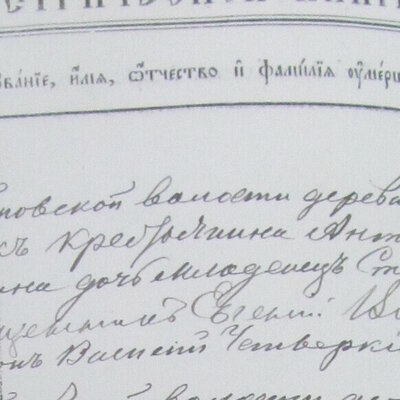 ЗВА́НІЕ, И҆́МЯ, Ѿ́ЧЕСТВО И҆ ФАМИ́ЛІЯ ОУ҆МЕ́РШ
повской волости дерев
къ крестьянина Ант
ина дочь младенецъ Ст
щенникъ Евгеній
онъ Василій Четверкі
волости